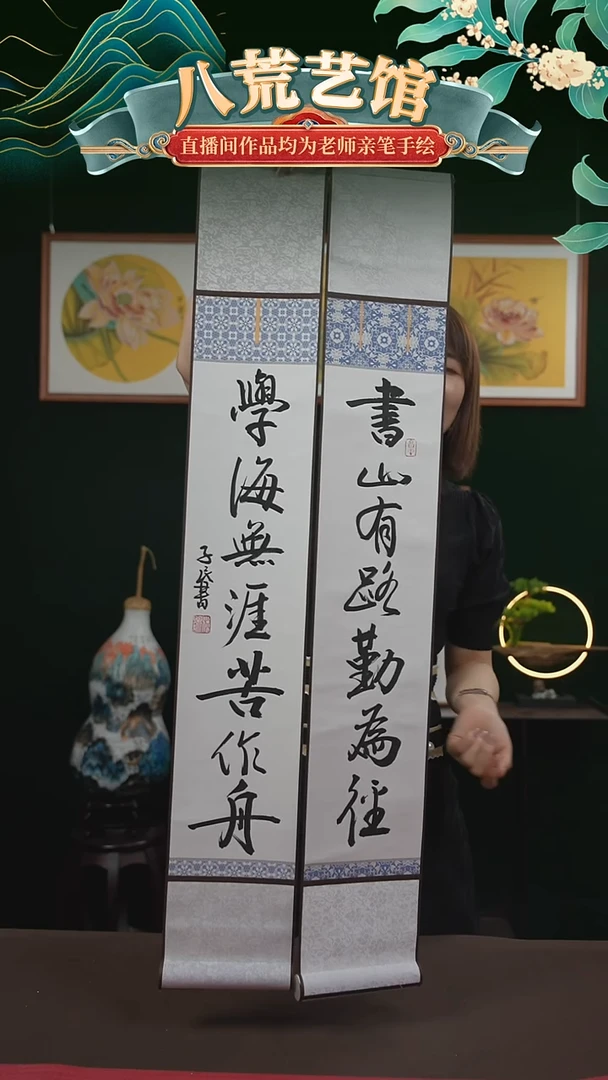 八荒艺馆
直播间作品均为老师亲笔手绘
書山有路勤為徑
學海無涯苦作舟